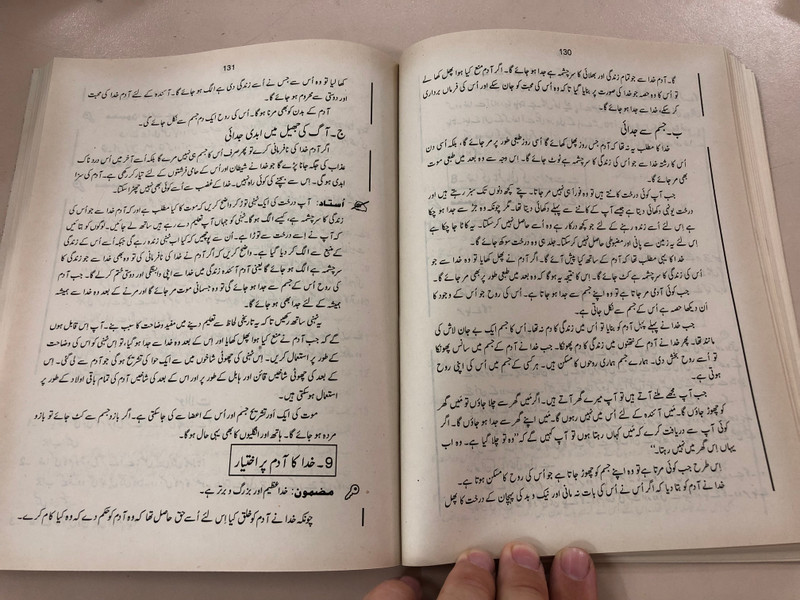 130
گا۔ آدم خدا سے جو تمام زندگی اور بھلائی کا سرچشمہ ہے جدا ہو جائے گا۔ اگر آدم منع کیا ہوا پھل کھا لے
تو اُس کا وہ حصہ جو خدا کی صورت پر بنایا گیا تاکہ وہ اُس کی محبت کو جان سکے اور اُس کی فرماں برداری
کر سکے، خدا سے جدا ہو جائے گا۔
ب۔ جسم سے جدائی
خدا کا مطلب یہ نہ تھا کہ آدم جس روز پھل کھائے گا اُسی روز طبعی طور پر مر جائے گا، بلکہ اُسی دن
اُس کا رشتہ خدا سے جو اُس کی زندگی کا سرچشمہ ہے ٹوٹ جائے گا۔ اِس وجہ سے وہ بعد میں طبعی موت
بھی مر جائے گا۔
جب آپ کوئی درخت کاٹتے ہیں تو وہ فوراً ہی نہیں مر جاتا۔ پتے کچھ دنوں تک سبز رہتے ہیں اور
درخت یونہی دکھائی دیتا ہے جیسے آپ کے کاٹنے سے پہلے دکھائی دیتا تھا۔ مگر چونکہ وہ جڑ سے جدا ہو چکا
ہے اِس لئے اُسے زندہ رہنے کے لئے جو کچھ درکار ہے وہ اُسے حاصل نہیں کر سکتا۔ یہ کاٹا جا چکا ہے
اِس لئے یہ زمین سے پانی اور مضبوطی حاصل نہیں کر سکتا۔ جلد ہی وہ درخت سوکھ جائے گا۔
خدا کا یہی مطلب تھا کہ آدم کے ساتھ کیا پیش آئے گا۔ اگر آدم نے پھل کھایا تو وہ خدا سے جو
اُس کی زندگی کا سرچشمہ ہے کٹ جائے گا۔ اِس کا نتیجہ یہ ہوگا کہ وہ بعد میں طبعی طور پر بھی مر جائے گا۔
جب کوئی آدمی مر جاتا ہے تو وہ اپنے جسم سے جدا ہو جاتا ہے۔ اُس کی روح جو اُس کے وجود کا
اَن دیکھا حصہ ہے اُس کے جسم سے نکل جاتی ہے۔
جب خدا نے پہلے پہل آدم کو بنایا تو اُس میں زندگی کا دم نہ تھا۔ اُس کا جسم ایک بے جان لاش کی
مانند تھا۔ پھر خدا نے آدم کے نتھنوں میں زندگی کا دم پھونکا۔ جب خدا نے آدم کے جسم میں سانس پھونکا
تو اُسے روح بخش دی۔ ہمارے جسم ہماری روحوں کا مسکن ہیں۔ ہر کسی کے جسم میں اُس کی اپنی روح
ہوتی ہے۔
جب آپ مجھے ملنے آتے ہیں تو آپ میرے گھر آتے ہیں۔ اگر مَیں گھر سے چلا جاؤں تو مَیں گھر
کو چھوڑ جاؤں گا۔ مَیں آئندہ کے لئے اُس میں نہیں رہوں گا۔ مَیں اپنے گھر سے جدا ہو جاؤں گا۔ اگر
کوئی آپ سے دریافت کرے کہ مَیں کہاں رہتا ہوں تو آپ کہیں گے کہ ”وہ تو چلا گیا ہے۔ وہ اب
یہاں اِس گھر میں نہیں رہتا۔“
اِس طرح جب کوئی مرتا ہے تو وہ اپنے جسم کو چھوڑ جاتا ہے جو اُس کی روح کا مسکن ہوتا ہے۔
خدا نے آدم کو بتا دیا کہ اگر اُس نے اُس کی بات نہ مانی اور نیک و بد کی پہچان کے درخت کا پھل
131
کھا لیا تو وہ اُس سے جس نے اُسے زندگی دی ہے الگ ہو جائے گا۔ آئندہ کے لئے آدم خدا کی محبت
اور دوستی سے محروم ہو جائے گا۔
آدم کے بدن کو بھی مرنا ہوگا۔ اُس کی روح ایک دم جسم سے نکل جائے گی۔
ج۔ آگ کی جھیل میں ابدی جدائی
اگر آدم خدا کی نافرمانی کرے تو پھر صرف اُس کا جسم ہی نہیں مرے گا بلکہ اُسے آخر میں اُس دردناک
عذاب کی جگہ جانا پڑے گا جو خدا نے شیطان اور اُس کے حامی فرشتوں کے لئے تیار کر رکھی ہے۔ آدم کی سزا
ابدی ہوگی۔ اِس سے بچنے کی کوئی راہ نہیں۔ خدا کے غضب سے اُسے کوئی بھی نہیں چھڑا سکتا۔
اُستاد: آپ درخت کی ایک ٹہنی توڑ کر واضح کریں کہ موت کا کیا مطلب ہے اور کہ آدم خدا سے جو اُس کی
زندگی کا سرچشمہ ہے، کیسے الگ ہوگا۔ ٹہنی کو جہاں آپ تعلیم دے رہے ہیں ساتھ لے جائیں۔ لوگوں کو بتائیں
کہ آپ نے اِسے درخت سے توڑا ہے۔ اُن سے پوچھیں کہ کیا اب ٹہنی زندہ رہے گی جبکہ اُسے اُس کے زندگی
کے منبع سے الگ کر دیا گیا ہے۔ واضح کریں کہ اگر آدم نے خدا کی نافرمانی کی تو وہ بھی خدا سے جو زندگی کا
سرچشمہ ہے الگ ہو جائے گا یعنی آدم آئندہ زندگی میں خدا سے اپنی وابستگی اور دوستی ختم کر لے گا۔ جب آدم
کی روح اُس کے جسم سے جدا ہو جائے گی تو وہ جسمانی موت مر جائے گا اور مرنے کے بعد وہ خدا سے ہمیشہ
ہمیشہ کے لئے جدا بھی ہو جائے گا۔
یہ ٹہنی ساتھ رکھیں تاکہ یہ تاریخی لحاظ سے تعلیم دینے میں مفید وضاحت کا سبب بنے۔ آپ اِس قابل ہوں
گے کہ جب آدم نے منع کیا ہوا پھل کھایا اور اِس کے بعد وہ خدا سے جدا ہو گیا، تو اِس ٹہنی کو اِس کی وضاحت
کے طور پر استعمال کریں۔ اِس ٹہنی کی چھوٹی شاخوں میں سے ایک حوا کی تشریح ہوگی جو آدم سے لی گئی۔ اِس
کے بعد کی چھوٹی شاخیں قائن اور ہابل کے طور پر اور اِس کے بعد کی شاخیں آدم کی تمام باقی اولاد کے طور پر
استعمال ہو سکتی ہیں۔
موت کی ایک اَور تشریح جسم اور اُس کے اعضا سے کی جا سکتی ہے۔ اگر بازو جسم سے کٹ جائے تو بازو
مردہ ہو جائے گا۔ ہاتھ اور انگلیوں کا بھی یہی حال ہوگا۔
9۔ خدا کا آدم پر اختیار
مضمون: خدا عظیم اور بزرگ و برتر ہے۔
چونکہ خدا نے آدم کو خلق کیا اِس لئے اُسے حق حاصل تھا کہ وہ آدم کو حکم دے کہ وہ کیا کام کرے۔